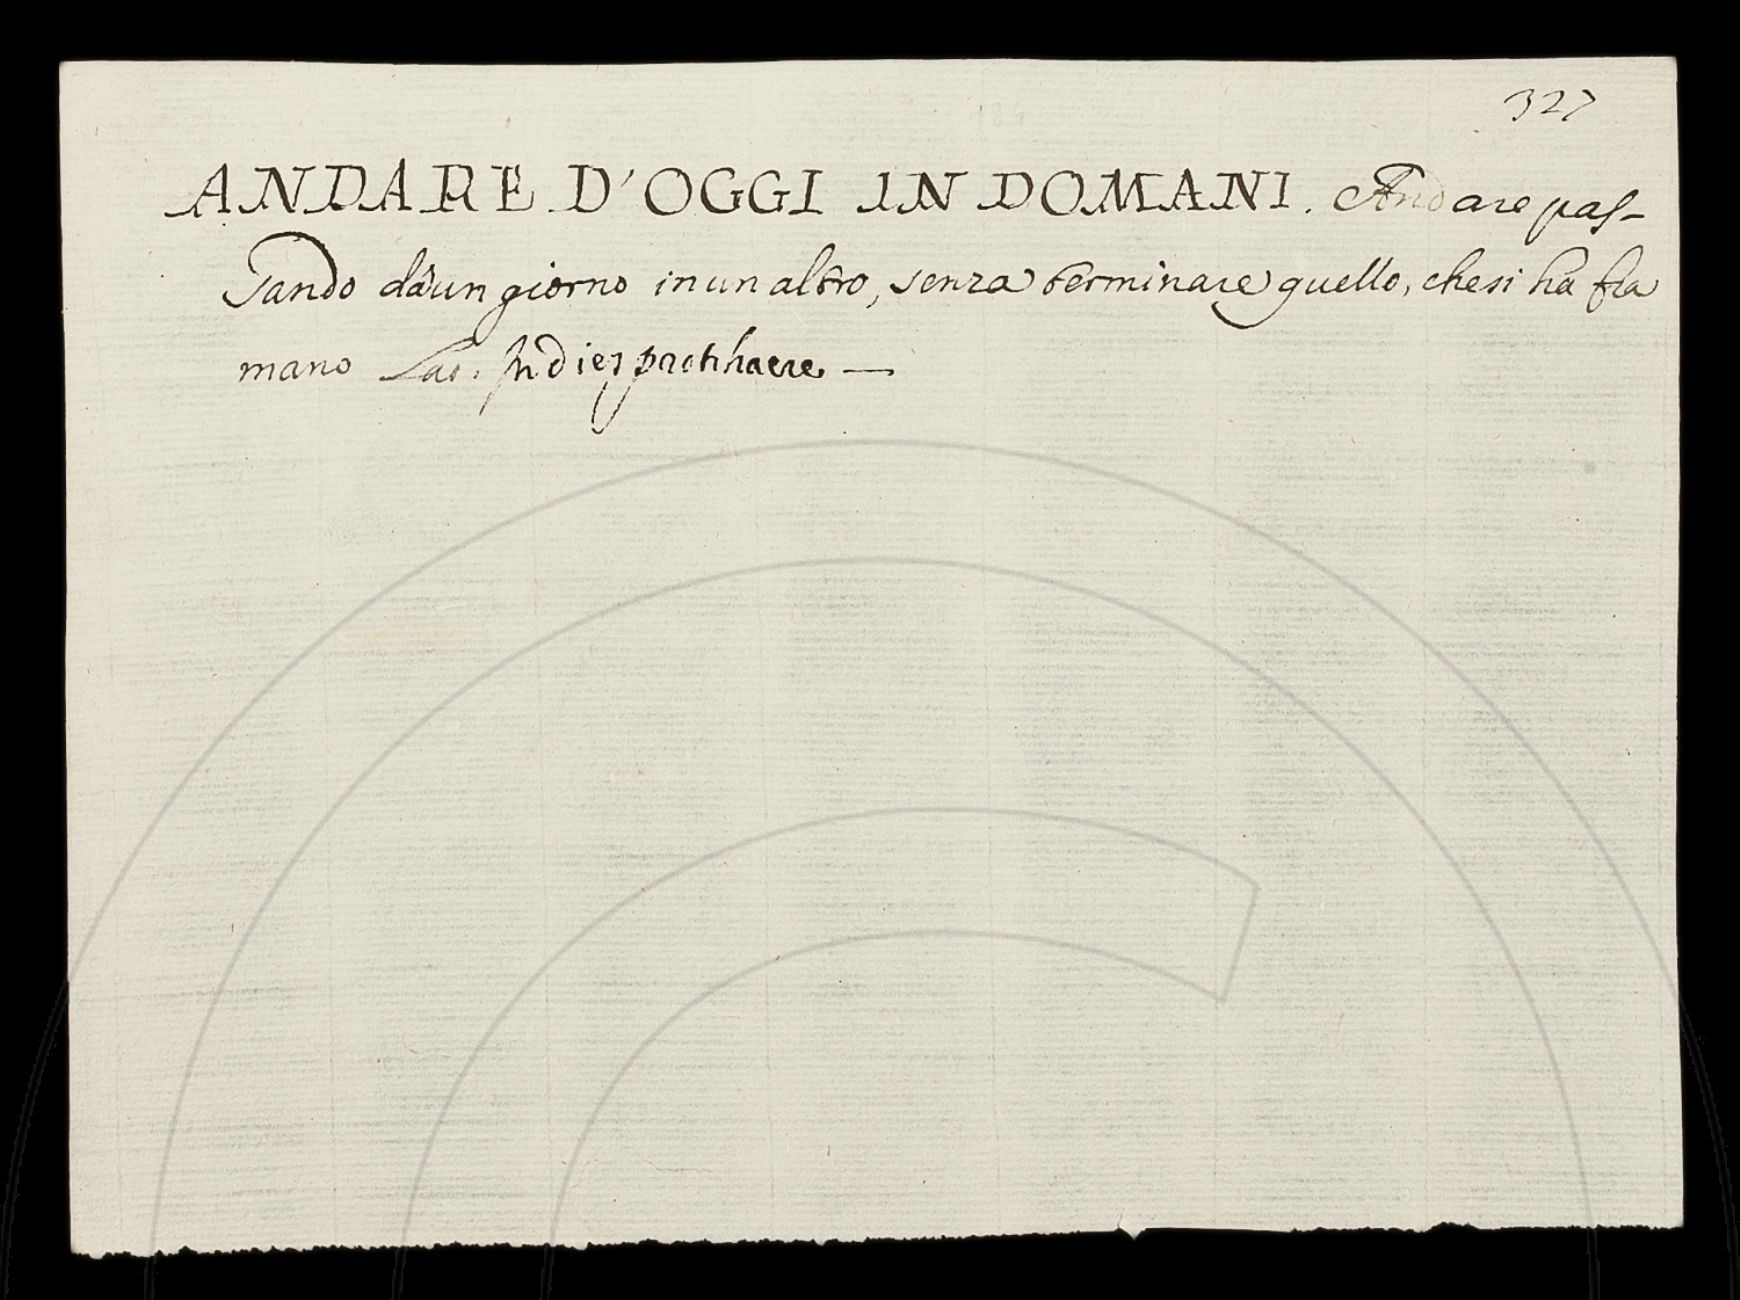 327
ANDARE D'OGGI IN DOMANI. Andare pas-
sando da un giorno in un altro, senza terminare quello, che si ha fra
mano Lat. In dies protrhaere —